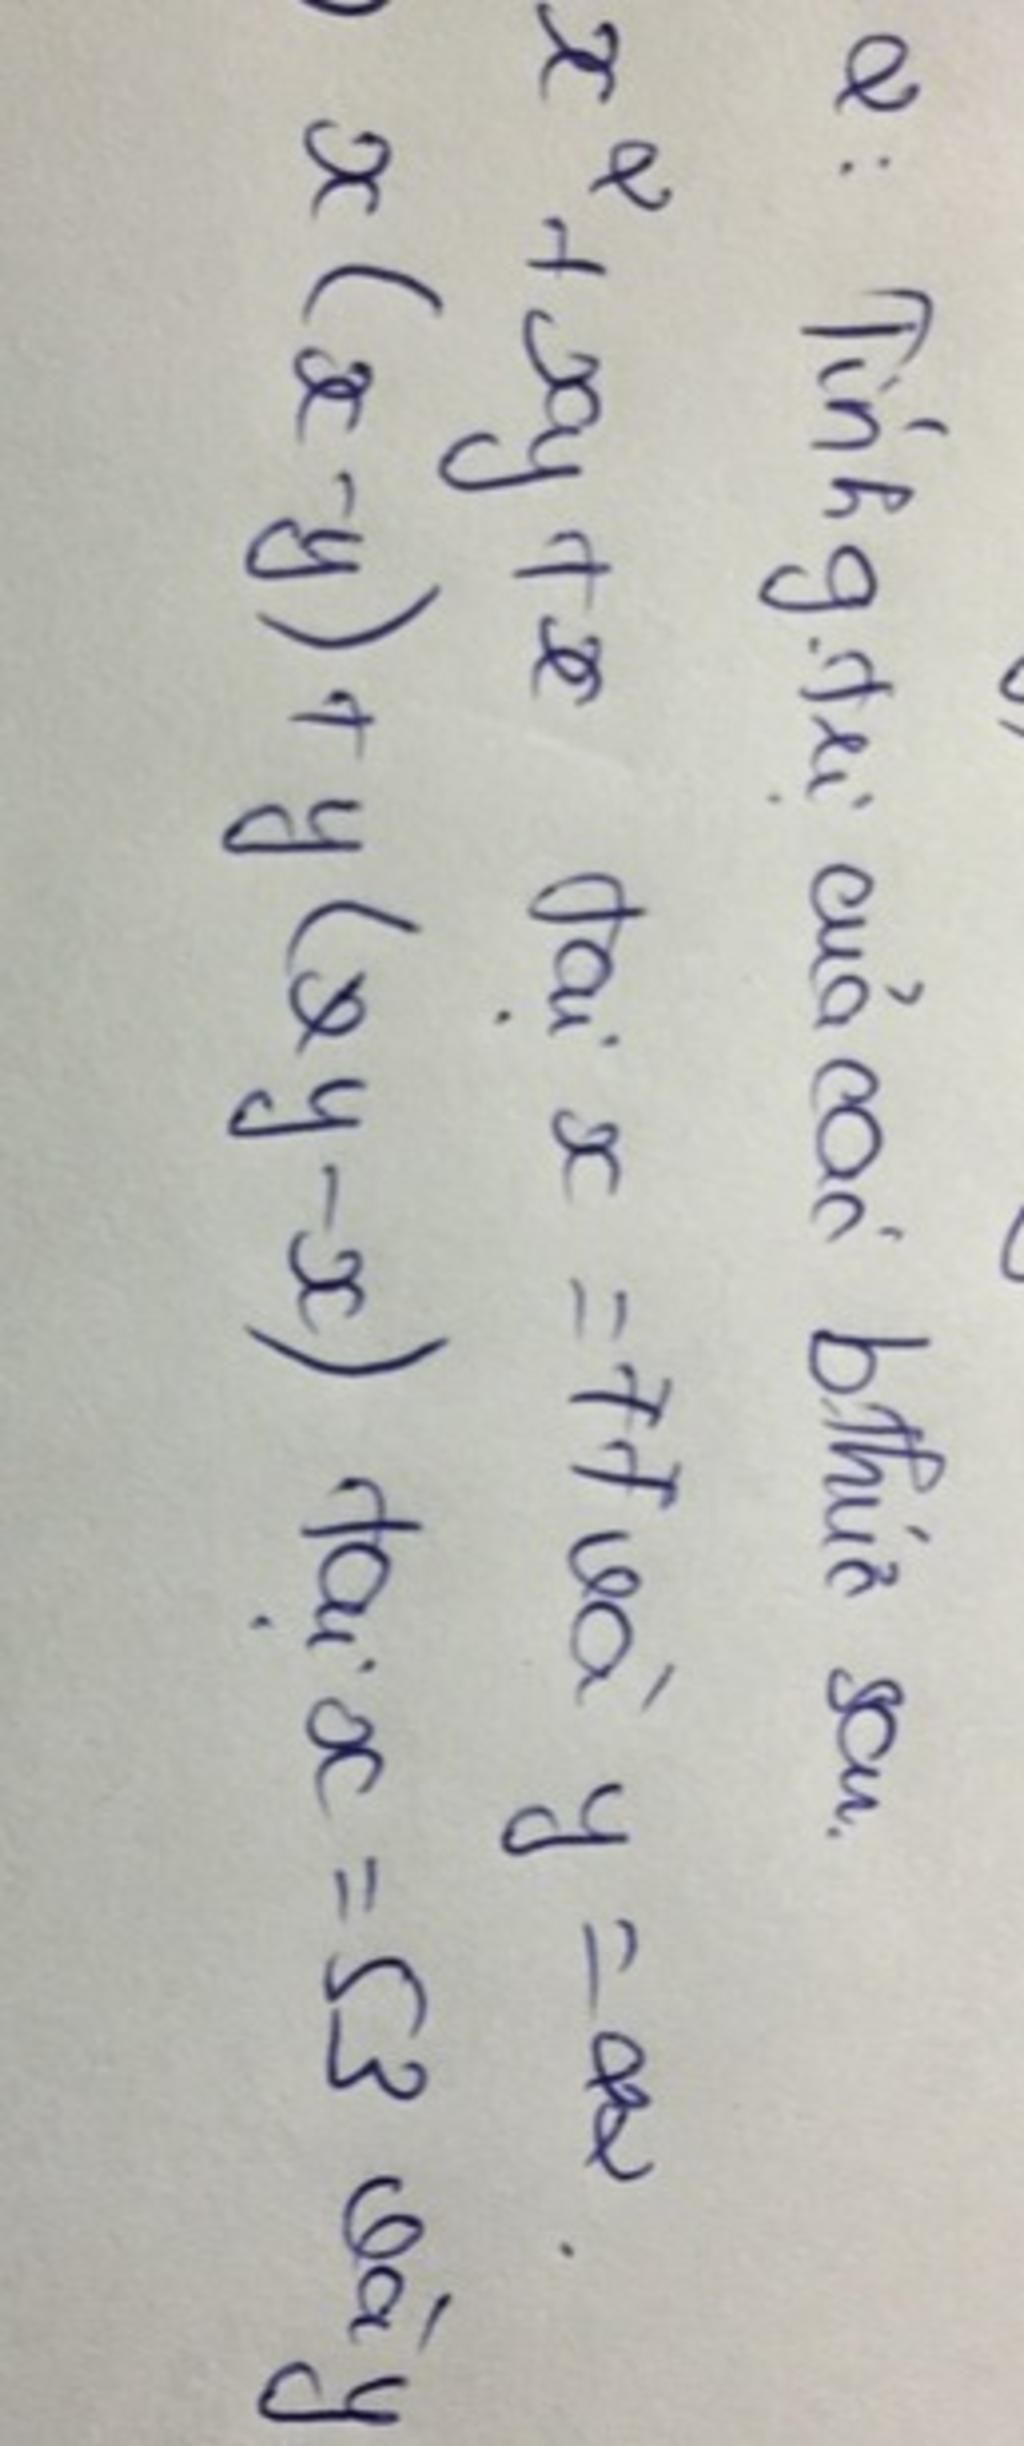 2: Tính g.trị của các bthức sau.
x² + xy + x tại x = 77 và y = 22.
x(x - y) + y(xy - x) tại x = 53 và y